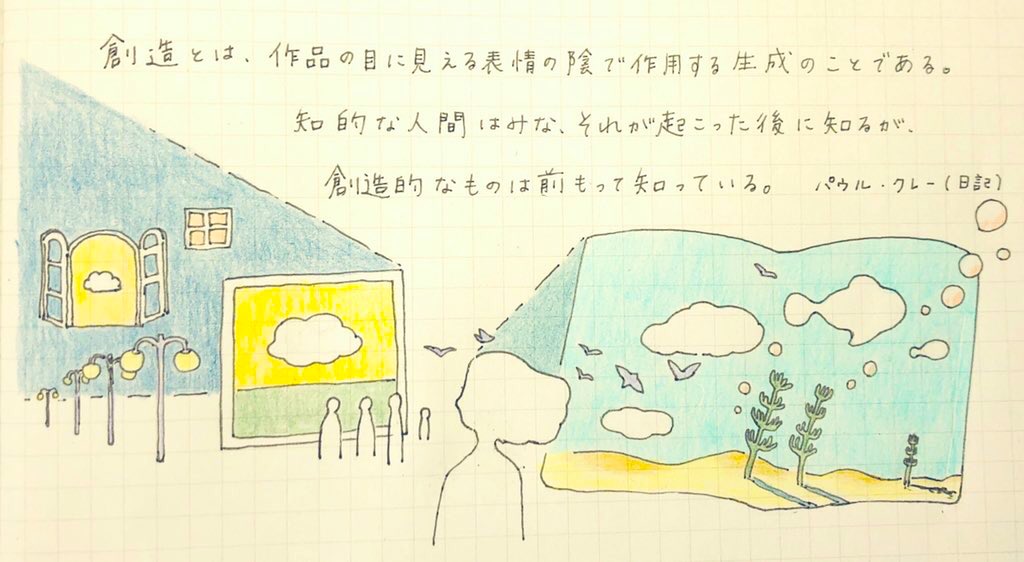 創造とは、作品の目に見える表情の陰で作用する生成のことである。
知的な人間はみな、それが起こった後に知るが、
創造的なものは前もって知っている。 パウル・クレー(日記)